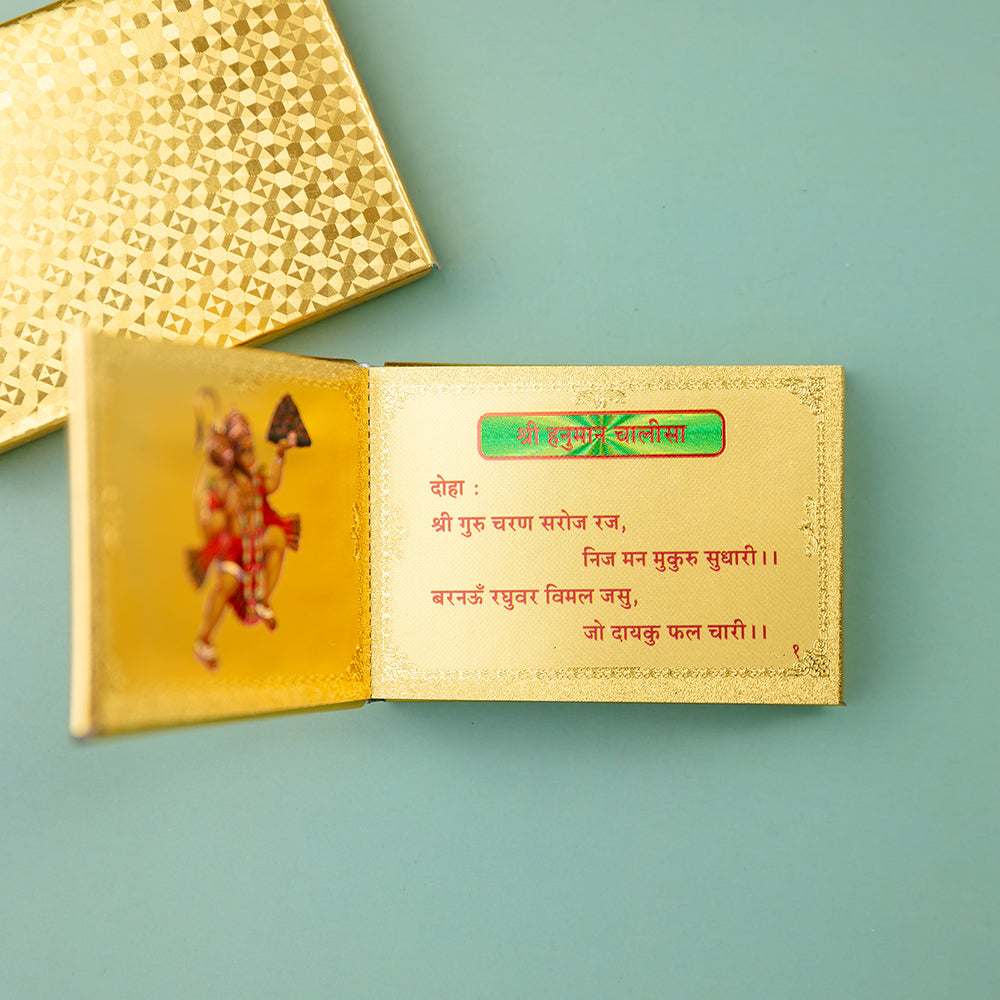 श्री हनुमान चालीसा
दोहा :
श्री गुरु चरण सरोज रज,
निज मन मुकुरु सुधारी।।
बरनऊँ रघुवर विमल जसु,
जो दायकु फल चारी।।
१